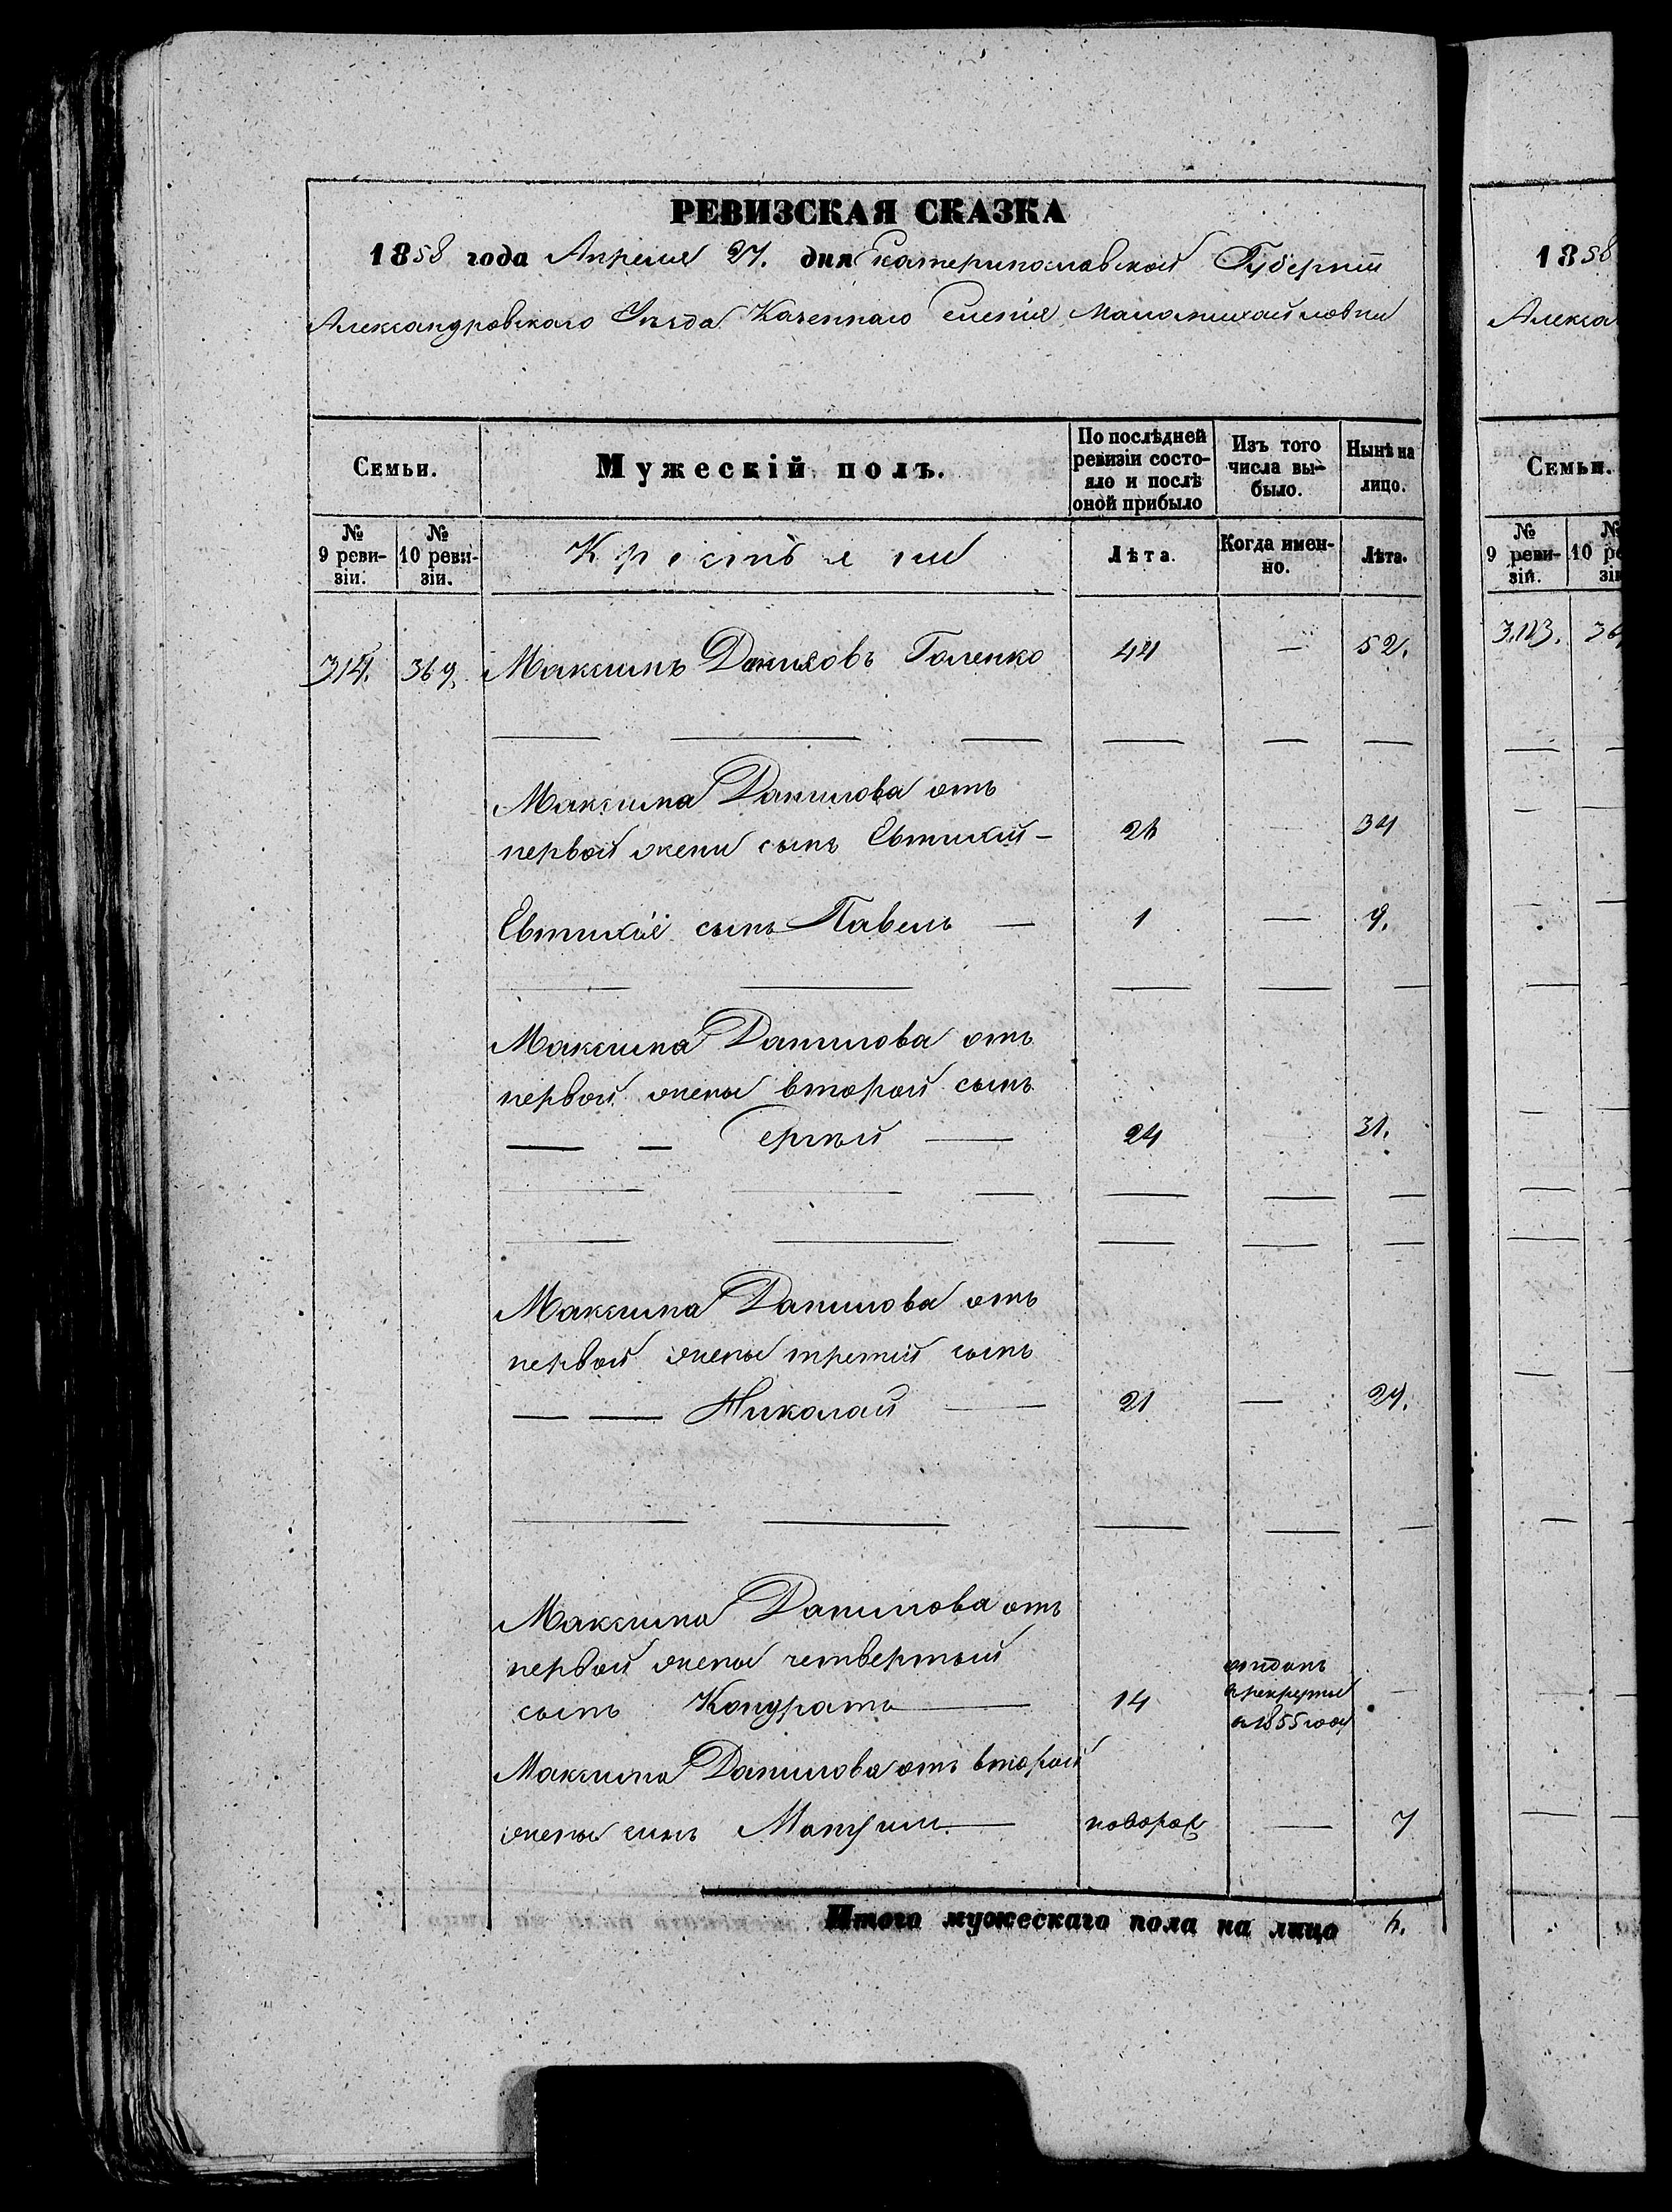 РЕВИЗСКАЯ СКАЗКА
1858 года Апреля 27. дня Екатеринославской Губерніи
Александровского Уѣзда Казеннаго Селенія Маломихайловки
Семьи.
Мужескій полъ.
По послѣдней ревизіи состо-
яло и послѣ
оной прибыло
Изъ того
числа вы-
было.
Нынѣ на
лицо.
№
9 реви-
зіи.
№
10 реви-
зіи.
Крестьяне
Лѣта.
Когда имен-
но.
Лѣта.
314. 369. Максимъ Даниловъ Голенко 44 — 52.
Максима Данилова отъ
первой жены сынъ Евтихий — 26 — 34
Евтихія сынъ Павелъ — 1 — 9.
Максима Данилова отъ
первой жены второй сынъ
— — Сергѣй — 24 31.
Максима Данилова отъ
первой жены третий сынъ
— — Николай — 21 — 29.
Максима Данилова отъ
первой жены четвертый
сынъ Кондратъ — 14 отданъ
в рекруты
в 1855 году —
Максима Данилова отъ второй
жены сынъ — новорож — 7
Итого мужескаго пола на лицо 6.
1858
Алекса
Семьи.
№
9 реви-
зіи.
№
10 ре
зіи